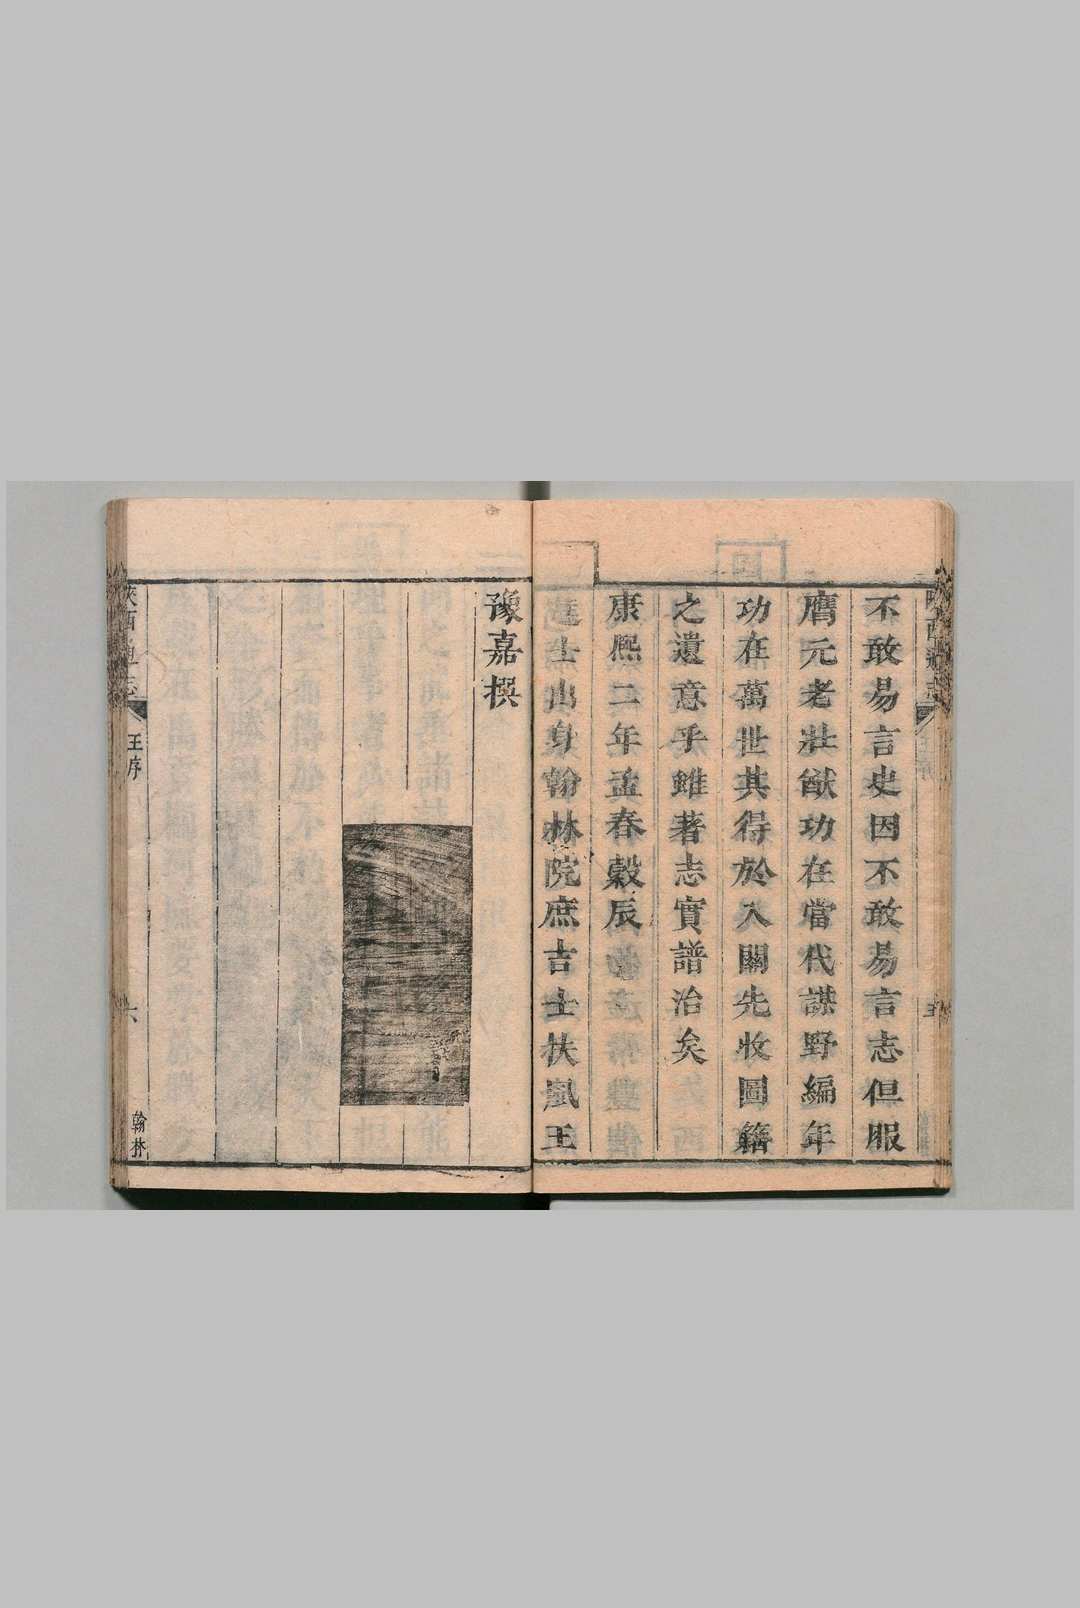 不敢易言史因不敢易言志但服
膺元老壯猷功在當代謀野編年
功在萬世其得於入關先收圖籍
之遺意乎雖著志實譜治矣
康熙二年孟春穀辰
進士出身翰林院庶吉士扶風王
豫嘉撰
陝西通志
王序
六
翰林